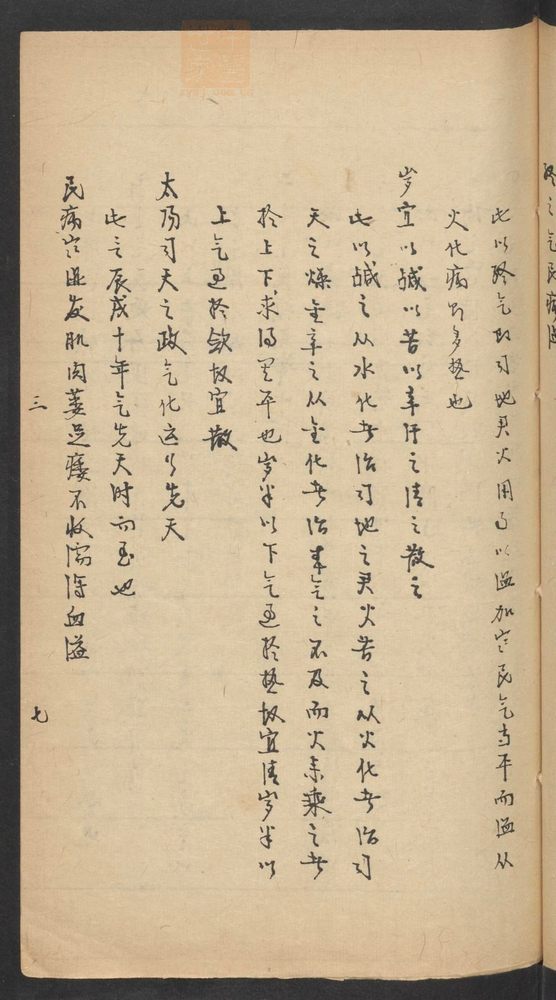 此以终气即司地君火用司以温加寒民气当平而温从
火化病则多热也
岁宜以鹹以苦以辛汗之清之散之
此以鹹之从水化者治司地之君火苦之从火化者治司
天之燥金辛之从金化者治本气之不及而火来乘之者
於上下求得其平也岁半以下气过於热故宜清岁半以
上气过於敛故宜散
太阳司天之政气化运行先天
此言辰戌十年气先天时而至也
民病寒湿发肌肉萎足痿不收濡泻血溢
三
七
终之气民病温